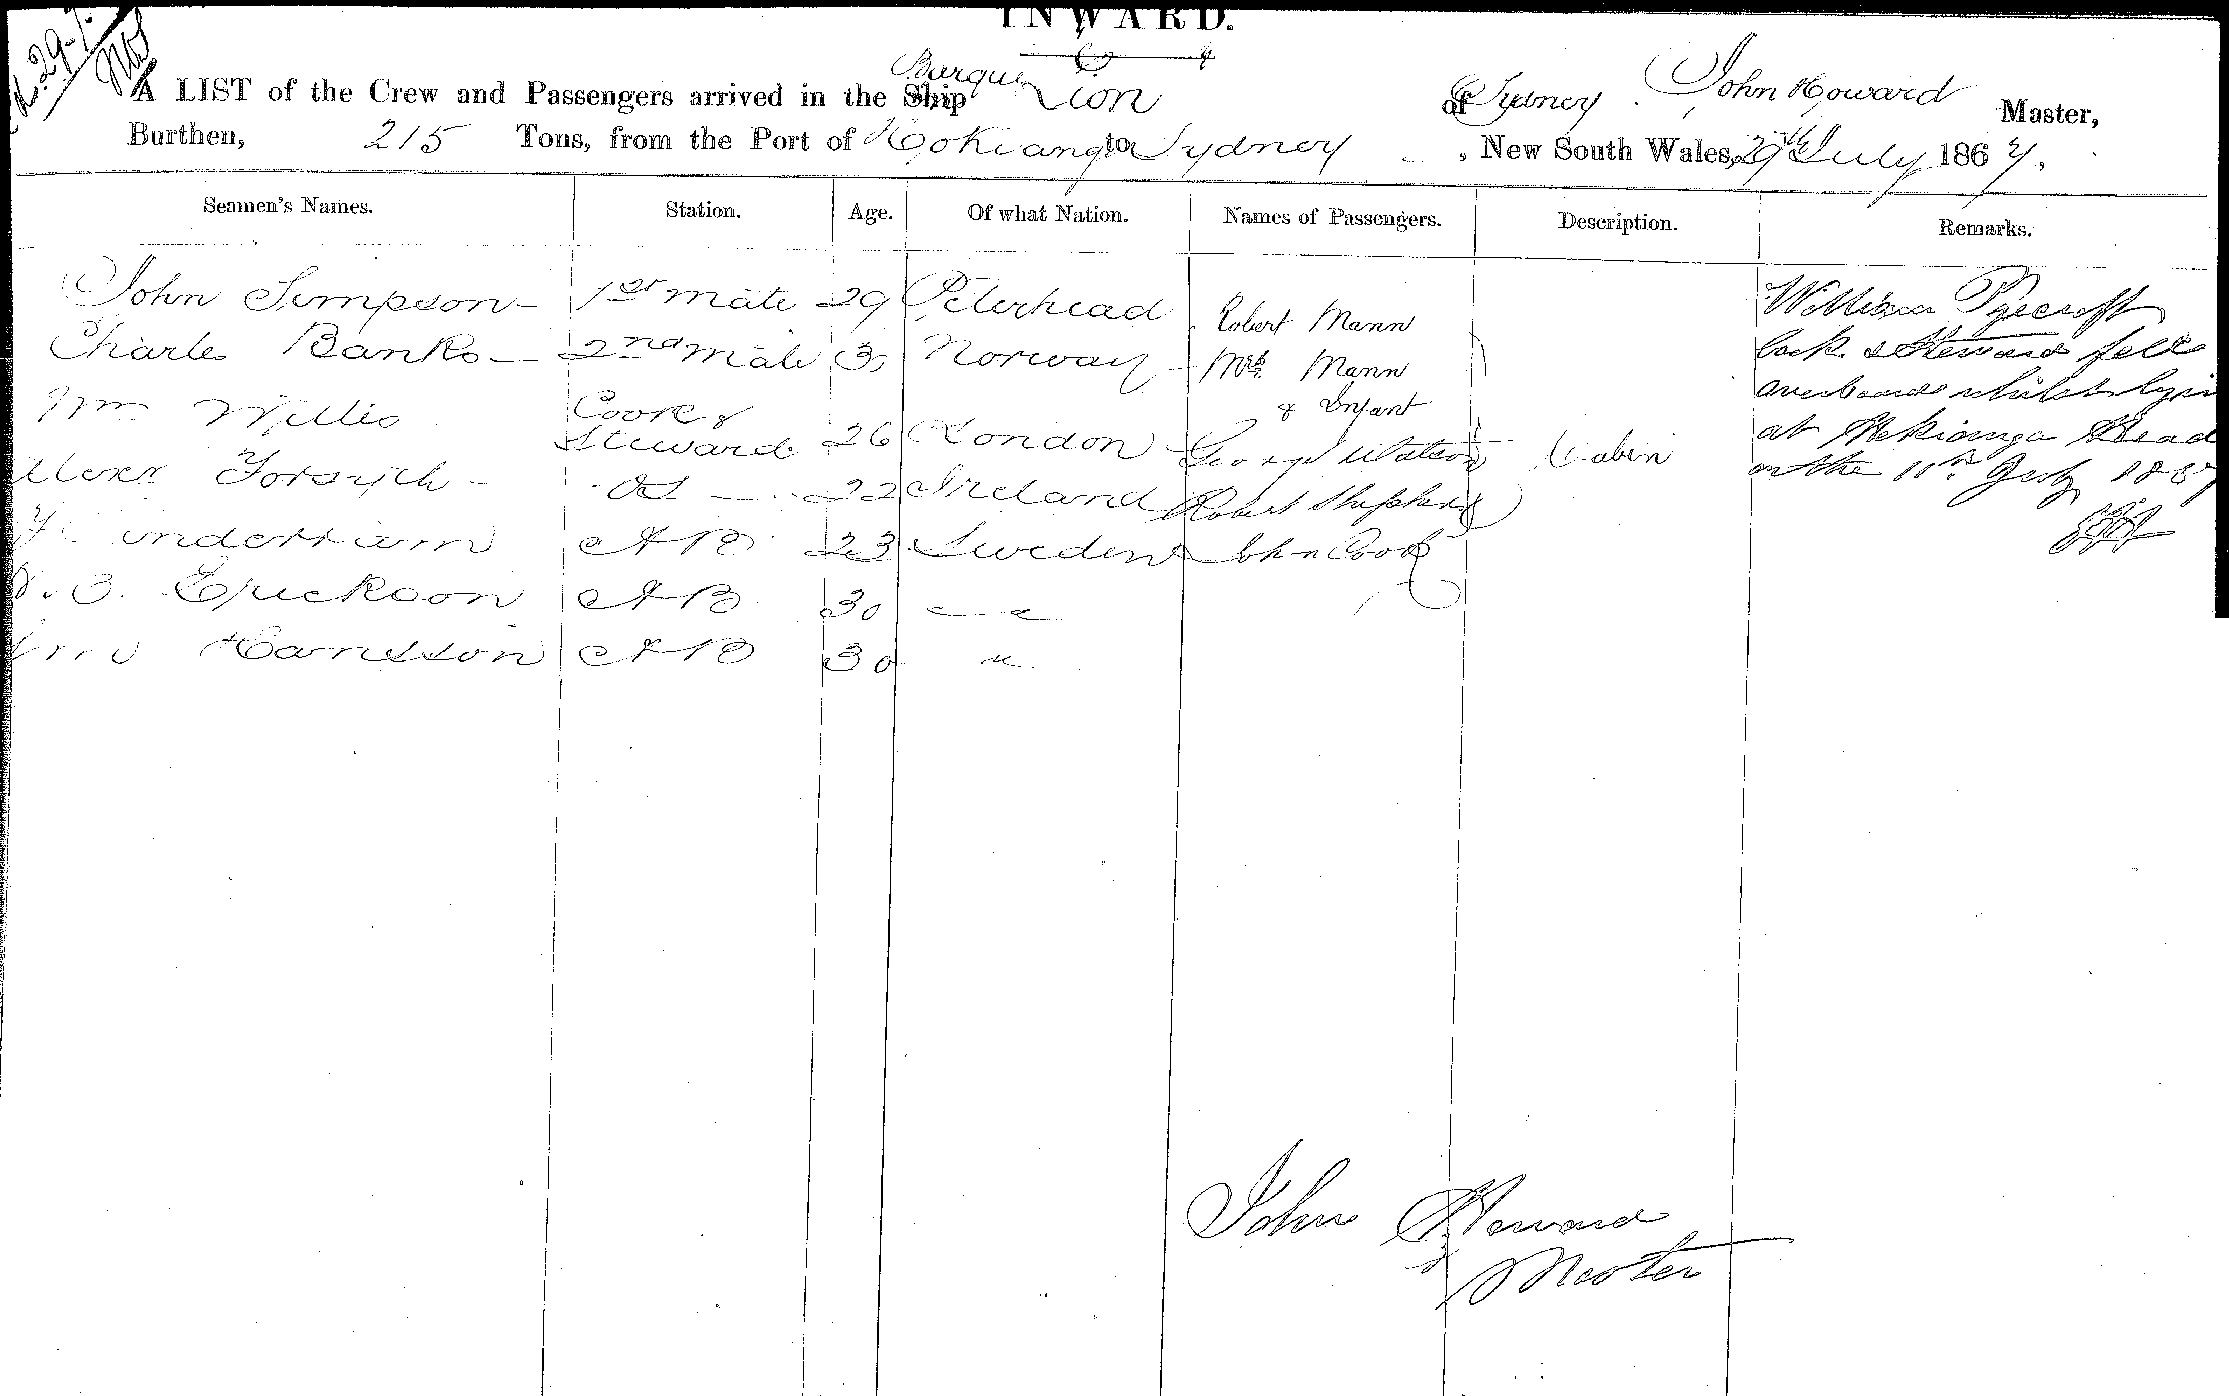 INWARD.
A LIST of the Crew and Passengers arrived in the Ship Barque Lion of Sydney John Howard Master,
Burthen, 215 Tons, from the Port of Hokianga to Sydney, New South Wales, 29th July 1867.
Seamen's Names. Station. Age. Of what Nation. Names of Passengers. Description. Remarks.
John Simpson 1st mate 29 Peterhead
Charles Banks 2nd Mate Norway
Wm Willis Cook & Steward 26 London
Alexr Forsyth OS 22 Ireland
AB 23 Sweden
Erickson AB 30 "
AB 30 "
Robert Mann
Mrs Mann
& Infant
George Watson
Robert Shepherd
John Cook
Cabin
William Pyecroft
Cook & Steward fell
overboard whilst
at Hokianga Head
on the 11th July 1867
John Howard
Master